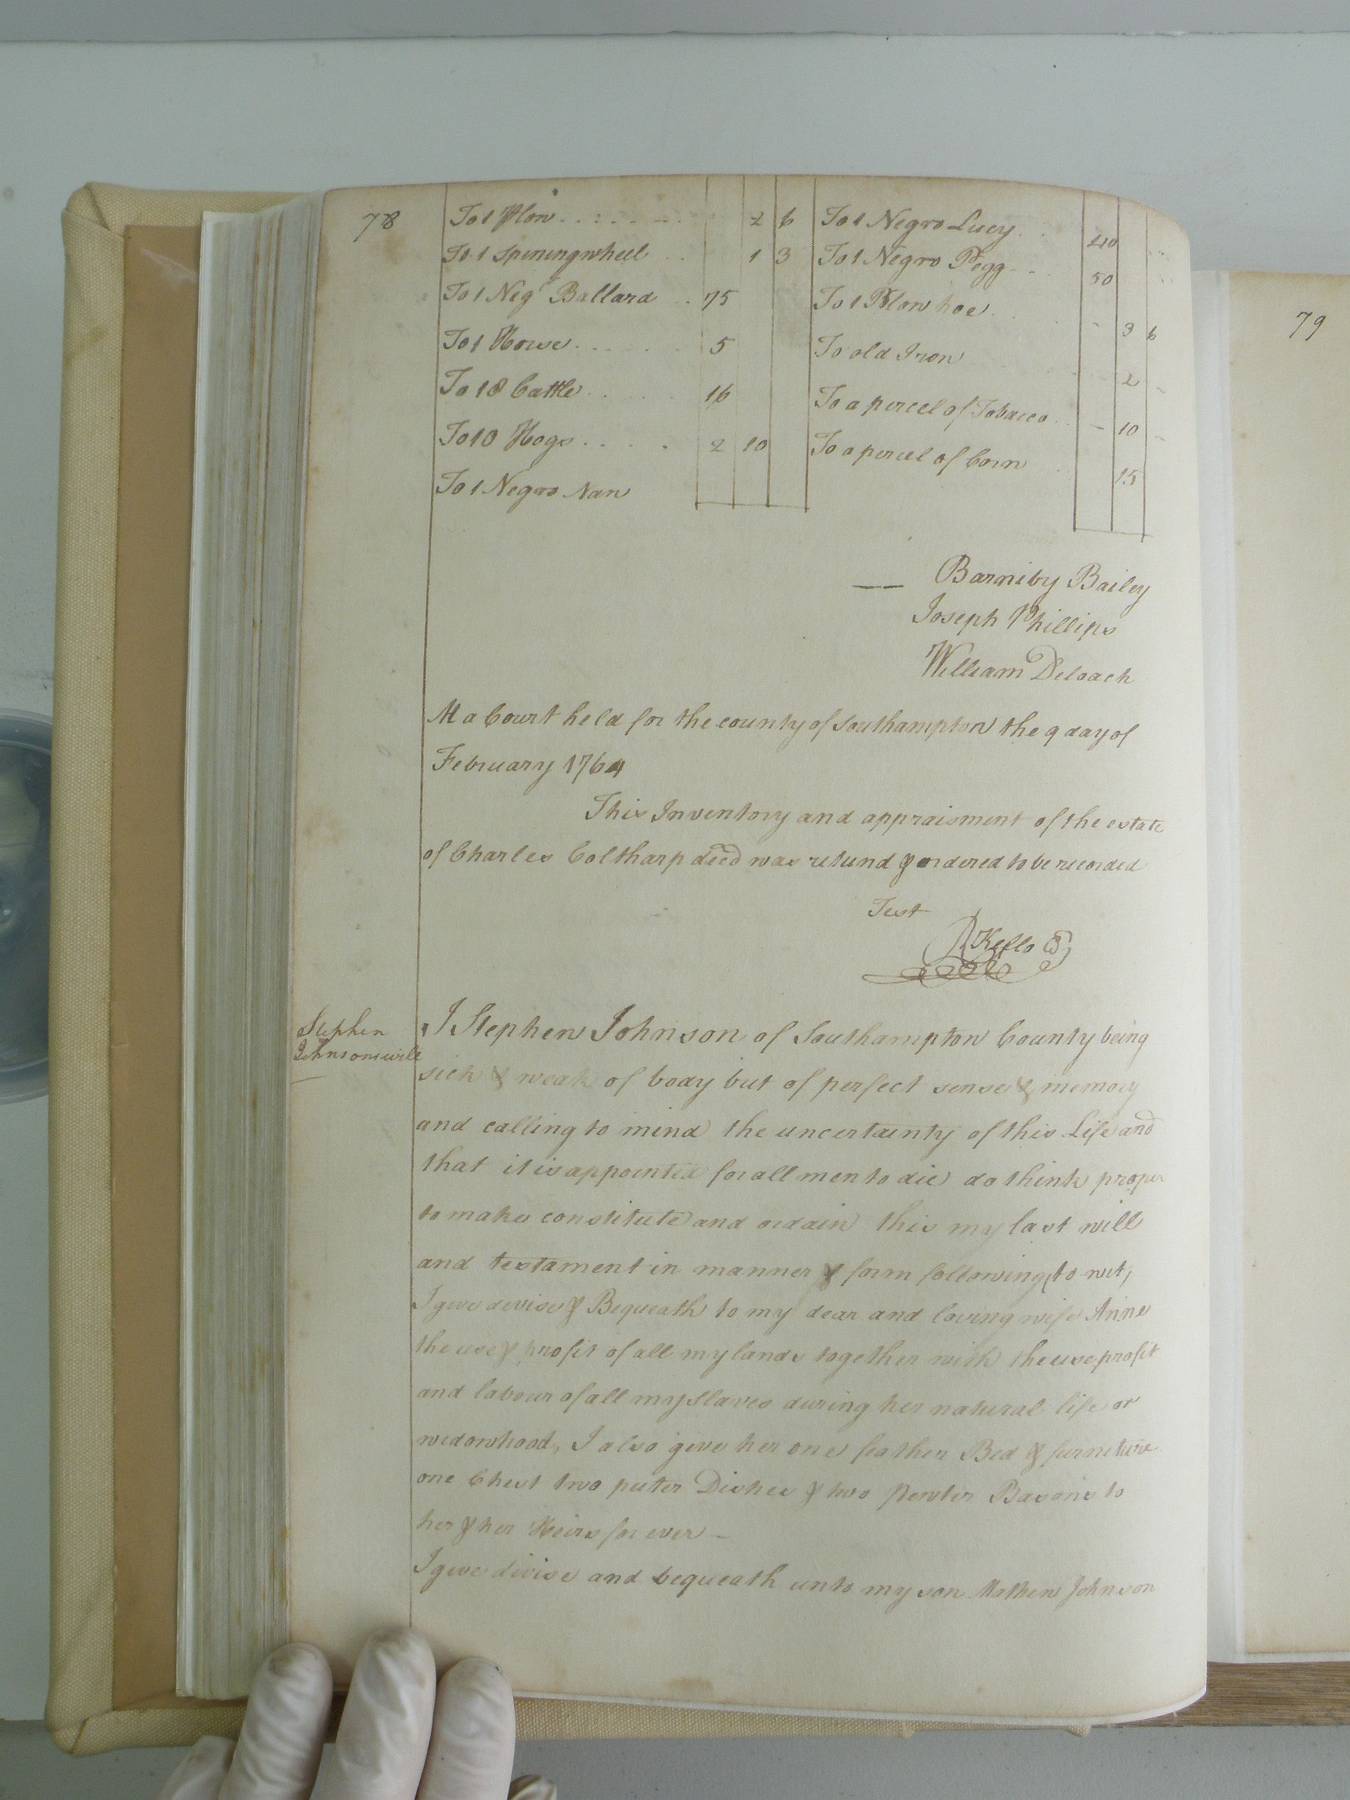 78
To 1 Plow 2 6
To 1 Spiningwheel 1 3
To 1 Neg Ballard 75
To 1 Horse 5
To 18 Cattle 16
To 10 Hogs 2 10
To 1 Negro Nan
To 1 Negro Lucy 40
To 1 Negro Pegg 50
To 1 Plow hoe - 3 6
To old Iron 2 -
To a percel of Tobacco - 10 -
To a percel of Corn 15
Barniby Bailey
Joseph Phillips
William Deloach
At a Court held for the county of Southampton the 9 day of
February 1764
This Inventory and appraisment of the estate
of Charles Coltharp decd was retund & ordered to be recorded
Test
Kello
Stephen
Johnsons will
I Stephen Johnson of Southampton County being
sick & weak of body but of perfect sense & memory
and calling to mind the uncertainty of this Life and
that it is appointed for all men to die do think proper
to make constitute and ordain this my last will
and testament in manner & form following, to wit,
I give devise & Bequeath to my dear and loving wife Anne
the use & profit of all my lands together with the use, profit
and labour of all my Slaves during her natural life or
wedowhood, I also give her one feather Bed & furneture
one Chest two puter Dishes & two Pewter Basons to
her & her Heirs for ever —
I give divise and bequeath unto my son Mathew Johnson
79